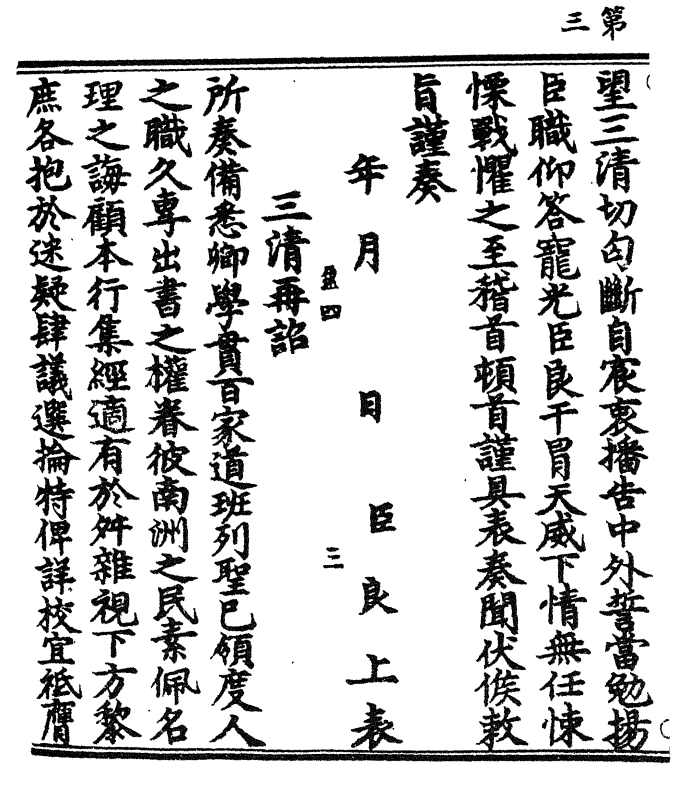 第三
望三清切匄斷自宸衷播告中外誓當勉揚
臣職仰答寵光臣良干冒天威下情無任悚
慄戰懼之至稽首頓首謹具表奏聞伏候敕
旨謹奏
年月　日　臣良上表
三
三清再詔
所奏備悉卿學貫百家道班列聖已領度人
之職久專出書之權眷彼南洲之民素佩名
理之誨顧本行集經適有於舛雜視下方黎
庶各抱於迷疑肆議選掄特俾詳校宜祗膺